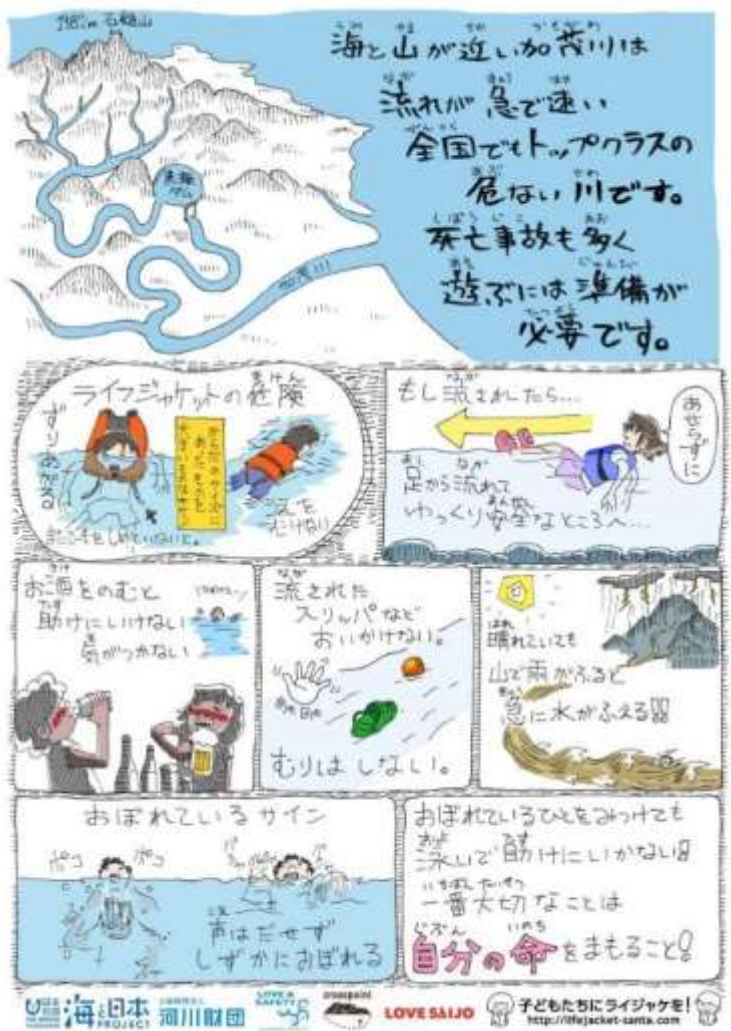 1982m 石鎚山
海と山が近い加茂川は
流れが急で速い
全国でもトップクラスの
危ない川です。
死亡事故も多く
遊ぶには準備が
必要です。
加茂川
ライフジャケットの危険
ずりあがる
からだのサイズに
あったものを
もし流されたら...
あせらずに
足から流れて
ゆっくり安全なところへ...
お酒をのむと
助けにいけない
気がつかない
流された
スリッパなど
おいかけない。
むりはしない。
晴れていても
山で雨がふると
急に水がふえる!!
おぼれているサイン
ポコ ポコ
声はだせず
しずかにおぼれる
おぼれているひとをみつけても
泳いで助けにいかない!!
一番大切なことは
自分の命をまもること!
海と日本
PROJECT
河川財団
LOVE & SAFETY
LOVE SAIJO
子どもたちにライジャケを!
http://lifejacket-santa.com